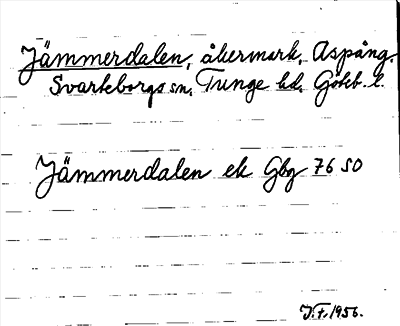 Jämmerdalen, åkermark, Aspång,
Svarteborgs sn, Tunge hd, Göteb. l.
Jämmerdalen ek Gbg 76 SO
J.F. 1956.